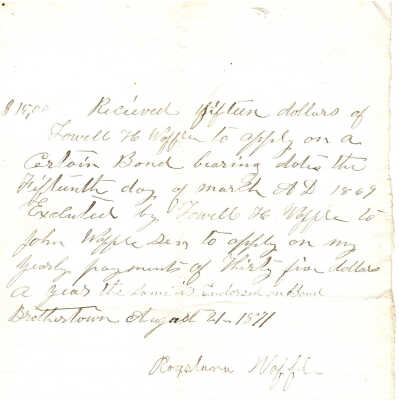 $15,00 Recieved fifteen dollars of
Lowell H Wopple to apply on a
Certain Bond bearing date the
Fifteenth day of march A D 1869
Executed by Lowell H Wopple to
John Wopple Sen to apply on my
yearly payments of Thirty five dollars
a year the same is Endorsed on Bond
Brothertown August 21 1871